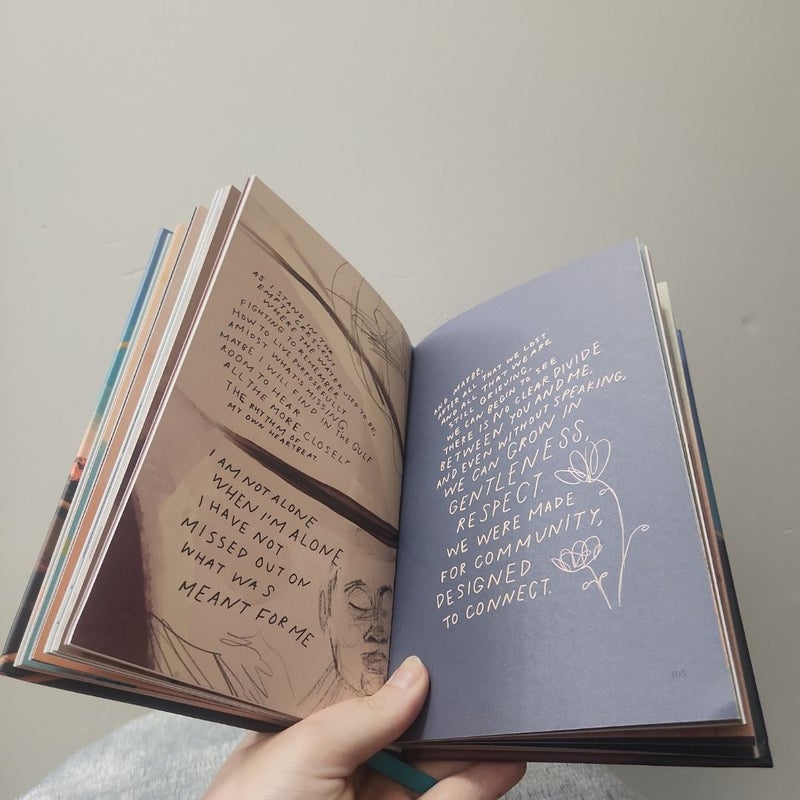 AS I STAND IN THE
EMPTY CRESCENT
WHERE THE WATER USED TO BE,
FIGHTING TO REMEMBER
HOW TO LIVE PURPOSEFULLY
AMIDST WHAT'S MISSING
MAYBE I WILL FIND IN THE GULF
ROOM TO HEAR
ALL THE MORE CLOSELY
THE RHYTHM OF
MY OWN HEARTBEAT.
I AM NOT ALONE
WHEN I'M ALONE
I HAVE NOT
MISSED OUT ON
WHAT WAS
MEANT FOR ME
AND MAYBE,
AFTER ALL THAT WE LOST
AND ALL THAT WE ARE
STILL GRIEVING,
WE CAN BEGIN TO SEE
THERE IS NO CLEAR DIVIDE
BETWEEN YOU AND ME,
AND EVEN WITHOUT SPEAKING,
WE CAN GROW IN
GENTLENESS,
RESPECT.
WE WERE MADE
FOR COMMUNITY,
DESIGNED
TO CONNECT.
105